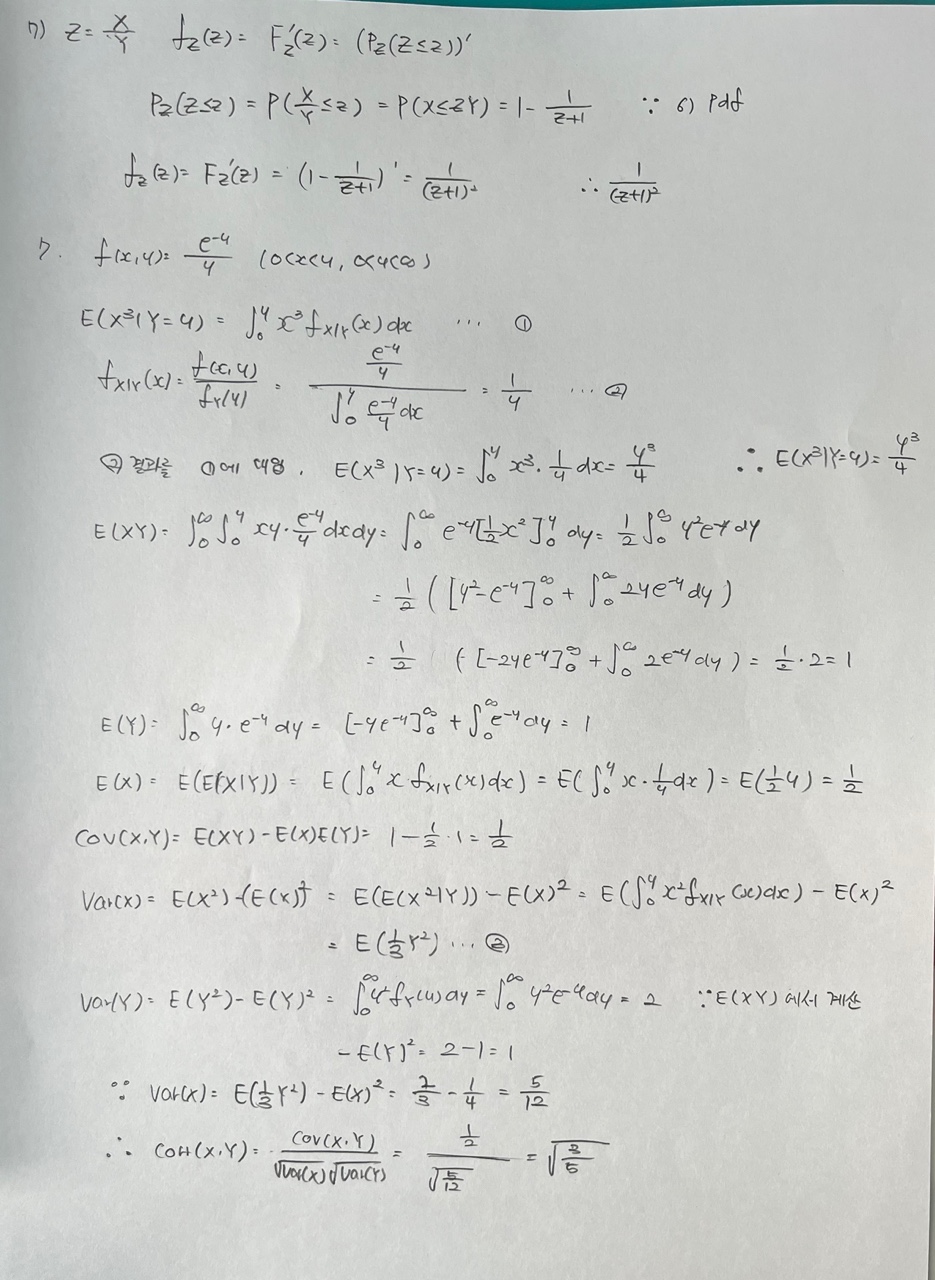 7) Z = X/Y  f_Z(z) = F_Z'(z) = (P_Z(Z≤z))'
P_Z(Z≤z) = P(X/Y ≤ z) = P(X≤ZY) = 1 - 1/(z+1)  ∵ 6) pdf
f_Z(z) = F_Z'(z) = (1 - 1/(z+1))' = 1/(z+1)²  ∴ 1/(z+1)²
7. f(x,y) = e^{-y}/y (0<x<y, 0<y<∞)
E(X³|Y=y) = ∫₀^y x³ f_{X|Y}(x) dx ... ①
f_{X|Y}(x) = f(x,y)/f_Y(y) = (e^{-y}/y) / (∫₀^y e^{-y}/y dx) = 1/y ... ②
② 결과를 ①에 대입. E(X³|Y=y) = ∫₀^y x³·1/y dx = y³/4  ∴ E(X³|Y=y) = y³/4
E(XY) = ∫₀^∞ ∫₀^y xy·e^{-y}/y dxdy = ∫₀^∞ e^{-y}[½x²]₀^y dy = ½∫₀^∞ y²e^{-y}dy
= ½([y²-e^{-y}]₀^∞ + ∫₀^∞ 2ye^{-y}dy)
= ½ ([-2ye^{-y}]₀^∞ + ∫₀^∞ 2e^{-y}dy) = ½·2 = 1
E(Y) = ∫₀^∞ y·e^{-y}dy = [-ye^{-y}]₀^∞ + ∫₀^∞ e^{-y}dy = 1
E(X) = E(E(X|Y)) = E(∫₀^y x f_{X|Y}(x)dx) = E(∫₀^y x·1/y dx) = E(½y) = ½
COV(X,Y) = E(XY) - E(X)E(Y) = 1 - ½·1 = ½
Var(X) = E(X²) - (E(X))² = E(E(X²|Y)) - E(X)² = E(∫₀^y x² f_{X|Y}(x)dx) - E(X)²
= E(⅓Y²) ... ③
Var(Y) = E(Y²) - E(Y)² = ∫₀^∞ y² f_Y(y)dy = ∫₀^∞ y²e^{-y}dy = 2  ∵ E(XY)에서 계산
- E(Y)² = 2-1 = 1
∵ Var(X) = E(⅓Y²) - E(X)² = 2/3 - 1/4 = 5/12
∴ Corr(X,Y) = COV(X,Y)/(√Var(X)√Var(Y)) = ½/√(5/12) = √(3/5)